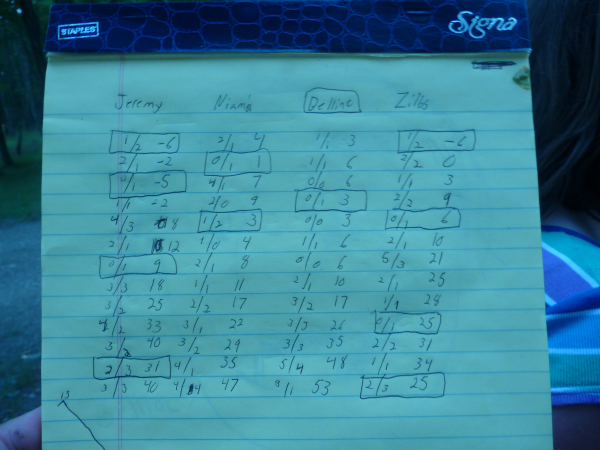 STAPLES Signa
Jeremy Niamia Belline Zilbs
1/2 -6 2/1 4 1/1 3 1/2 -6
2/1 -2 0/1 1 1/1 6 2/2 0
4/1 -5 4/1 7 0/0 6 1/1 3
1/1 -2 2/0 9 0/1 3 2/2 9
4/3 8 1/2 3 0/0 3 0/1 6
2/1 12 1/0 4 1/1 6 2/1 10
0/1 9 2/1 8 0/0 6 5/3 21
3/3 18 1/1 11 2/1 10 2/1 25
3/2 25 2/2 17 3/2 17 1/1 28
4/2 33 3/1 22 3/3 26 0/1 25
3/2 40 3/2 29 3/3 35 2/2 31
2/3 31 4/1 35 5/4 48 1/1 34
3/3 40 4/4 47 /1 53 2/3 25
13